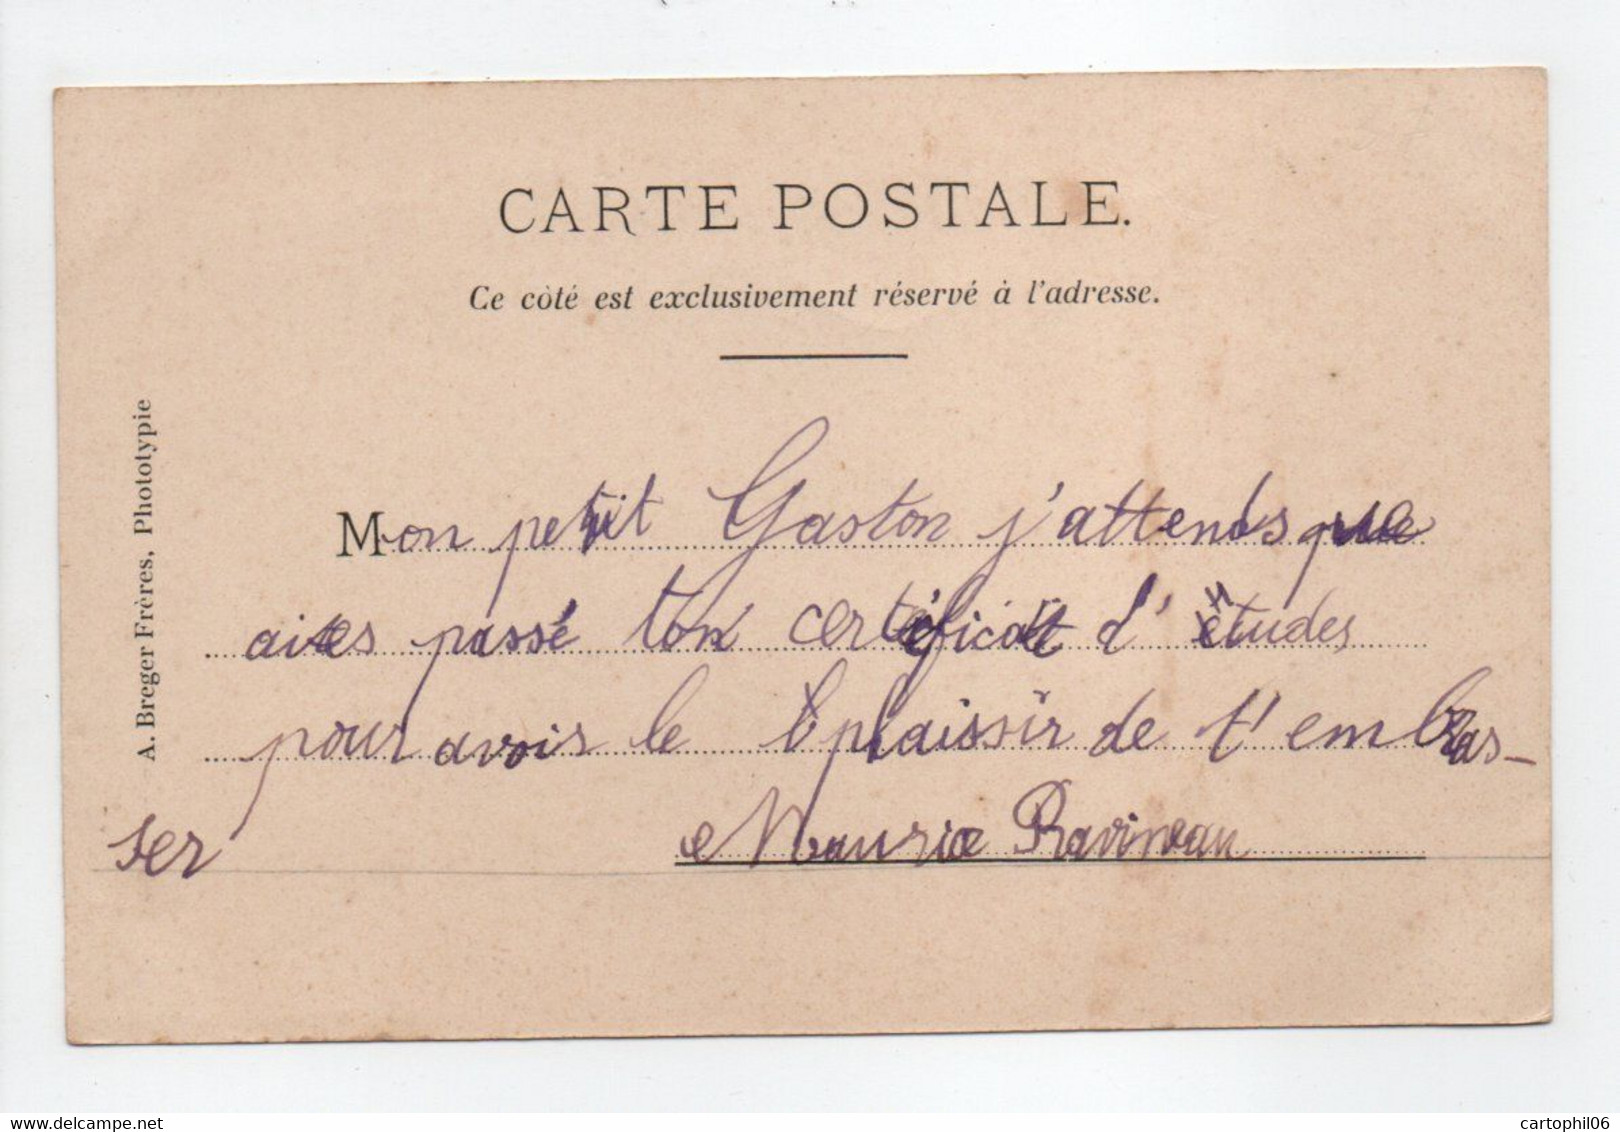 CARTE POSTALE.
Ce côté est exclusivement réservé à l'adresse.
A. Breger Frères, Phototypie
Mon petit Gaston j'attends que
aies passé ton certéficat d'études
pour avoir le plaissir de t'embras-
ser
Maurice Ravineau
cartophil06